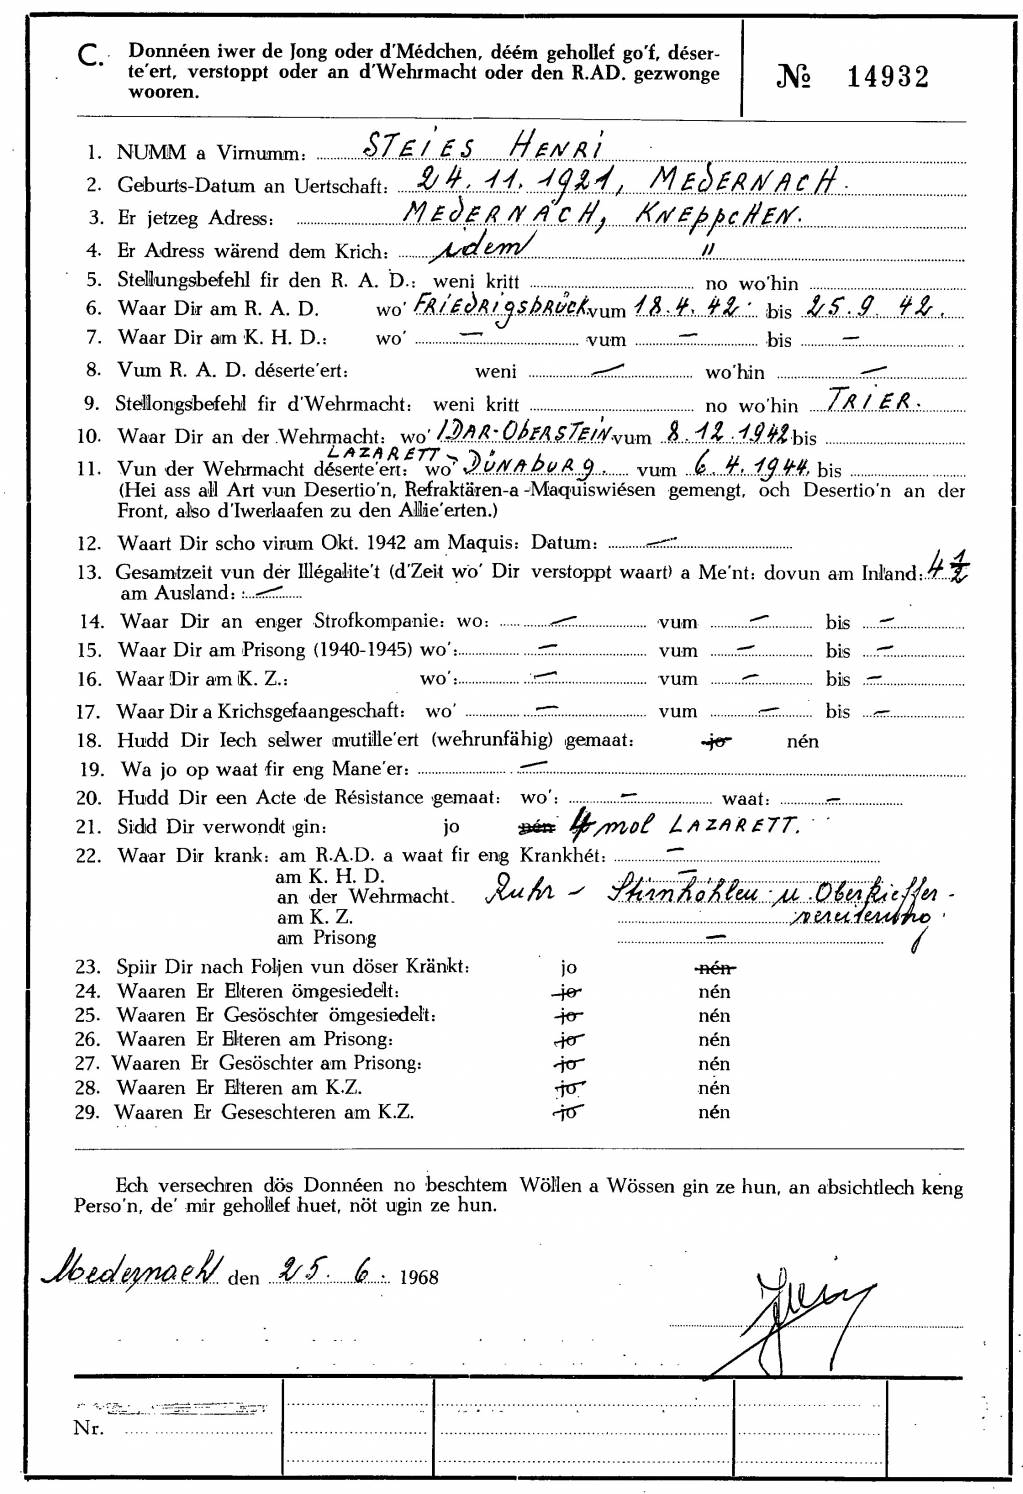 C. Donnéen iwer de Jong oder d'Médchen, déém gehollef go'f, déser-
te'ert, verstoppt oder an d'Wehrmacht oder den R.AD. gezwonge
wooren.
№ 14932
1. NUMM a Virnumm: STEIES HENRI
2. Geburts-Datum an Uertschaft: 24.11.1921, MEDERNACH.
3. Er jetzeg Adress: MEDERNACH, KNEPPCHEN.
4. Er Adress wärend dem Krich: idem "
5. Stellungsbefehl fir den R. A. D.: weni kritt no wo'hin
6. Waar Dir am R. A. D. wo' FRIEDRIGSBRÜCK vum 18.4.42 bis 25.9.42.
7. Waar Dir am K. H. D.: wo' — vum — bis —
8. Vum R. A. D. déserte'ert: weni — wo'hin —
9. Stellongsbefehl fir d'Wehrmacht: weni kritt no wo'hin TRIER.
10. Waar Dir an der Wehrmacht: wo' IDAR-OBERSTEIN vum 8.12.1942 bis
LAZARETT -
11. Vun der Wehrmacht déserte'ert: wo' DÜNABURG. vum 6.4.1944. bis
(Hei ass all Art vun Desertio'n, Refraktären-a -Maquiswiésen gemengt, och Desertio'n an der
Front, also d'Iwerlaafen zu den Allie'erten.)
12. Waart Dir scho virum Okt. 1942 am Maquis: Datum: —
13. Gesamtzeit vun der Illégalite't (d'Zeit wo' Dir verstoppt waart) a Me'nt: dovun am Inland: 4 1/2
am Ausland: : —
14. Waar Dir an enger Strofkompanie: wo: — vum — bis —
15. Waar Dir am Prisong (1940-1945) wo': — vum — bis —
16. Waar Dir am K. Z.: wo': — vum — bis —
17. Waar Dir a Krichsgefaangeschaft: wo' — vum — bis —
18. Hudd Dir Iech selwer mutille'ert (wehrunfähig) gemaat: jo nén
19. Wa jo op waat fir eng Mane'er: —
20. Hudd Dir een Acte de Résistance gemaat: wo': — waat: —
21. Sidd Dir verwondt gin: jo nén 4 mol LAZARETT.
22. Waar Dir krank: am R.A.D. a waat fir eng Krankhét: —
am K. H. D. —
an der Wehrmacht. Ruhr – Stirnhöhlen u. Oberkieffer-
am K. Z. vereiterung.
am Prisong —
23. Spiir Dir nach Foljen vun döser Kränkt: jo nén
24. Waaren Er Elteren ömgesiedelt: jo nén
25. Waaren Er Gesöschter ömgesiedelt: jo nén
26. Waaren Er Elteren am Prisong: jo nén
27. Waaren Er Gesöschter am Prisong: jo nén
28. Waaren Er Elteren am K.Z. jo nén
29. Waaren Er Geseschteren am K.Z. jo nén
Ech versechren dös Donnéen no beschtem Wöllen a Wössen gin ze hun, an absichtlech keng
Perso'n, de' mir gehollef huet, nöt ugin ze hun.
Medernach den 25. 6. 1968
Nr.